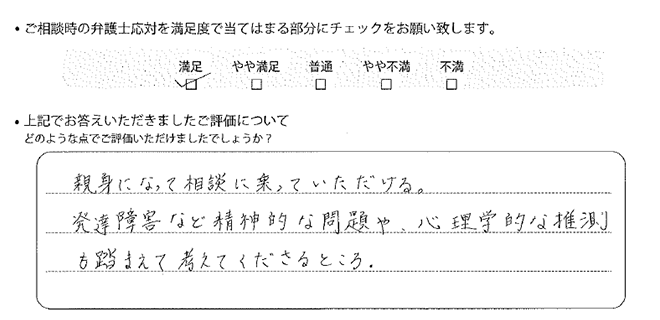 ・ご相談時の弁護士応対を満足度で当てはまる部分にチェックをお願い致します。
満足 やや満足 普通 やや不満 不満
☑ □ □ □ □
・上記でお答えいただきましたご評価について
どのような点でご評価いただけましたでしょうか？
親身になって相談に乗っていただける。
発達障害など精神的な問題や、心理学的な推測
も踏まえて考えてくださるところ．